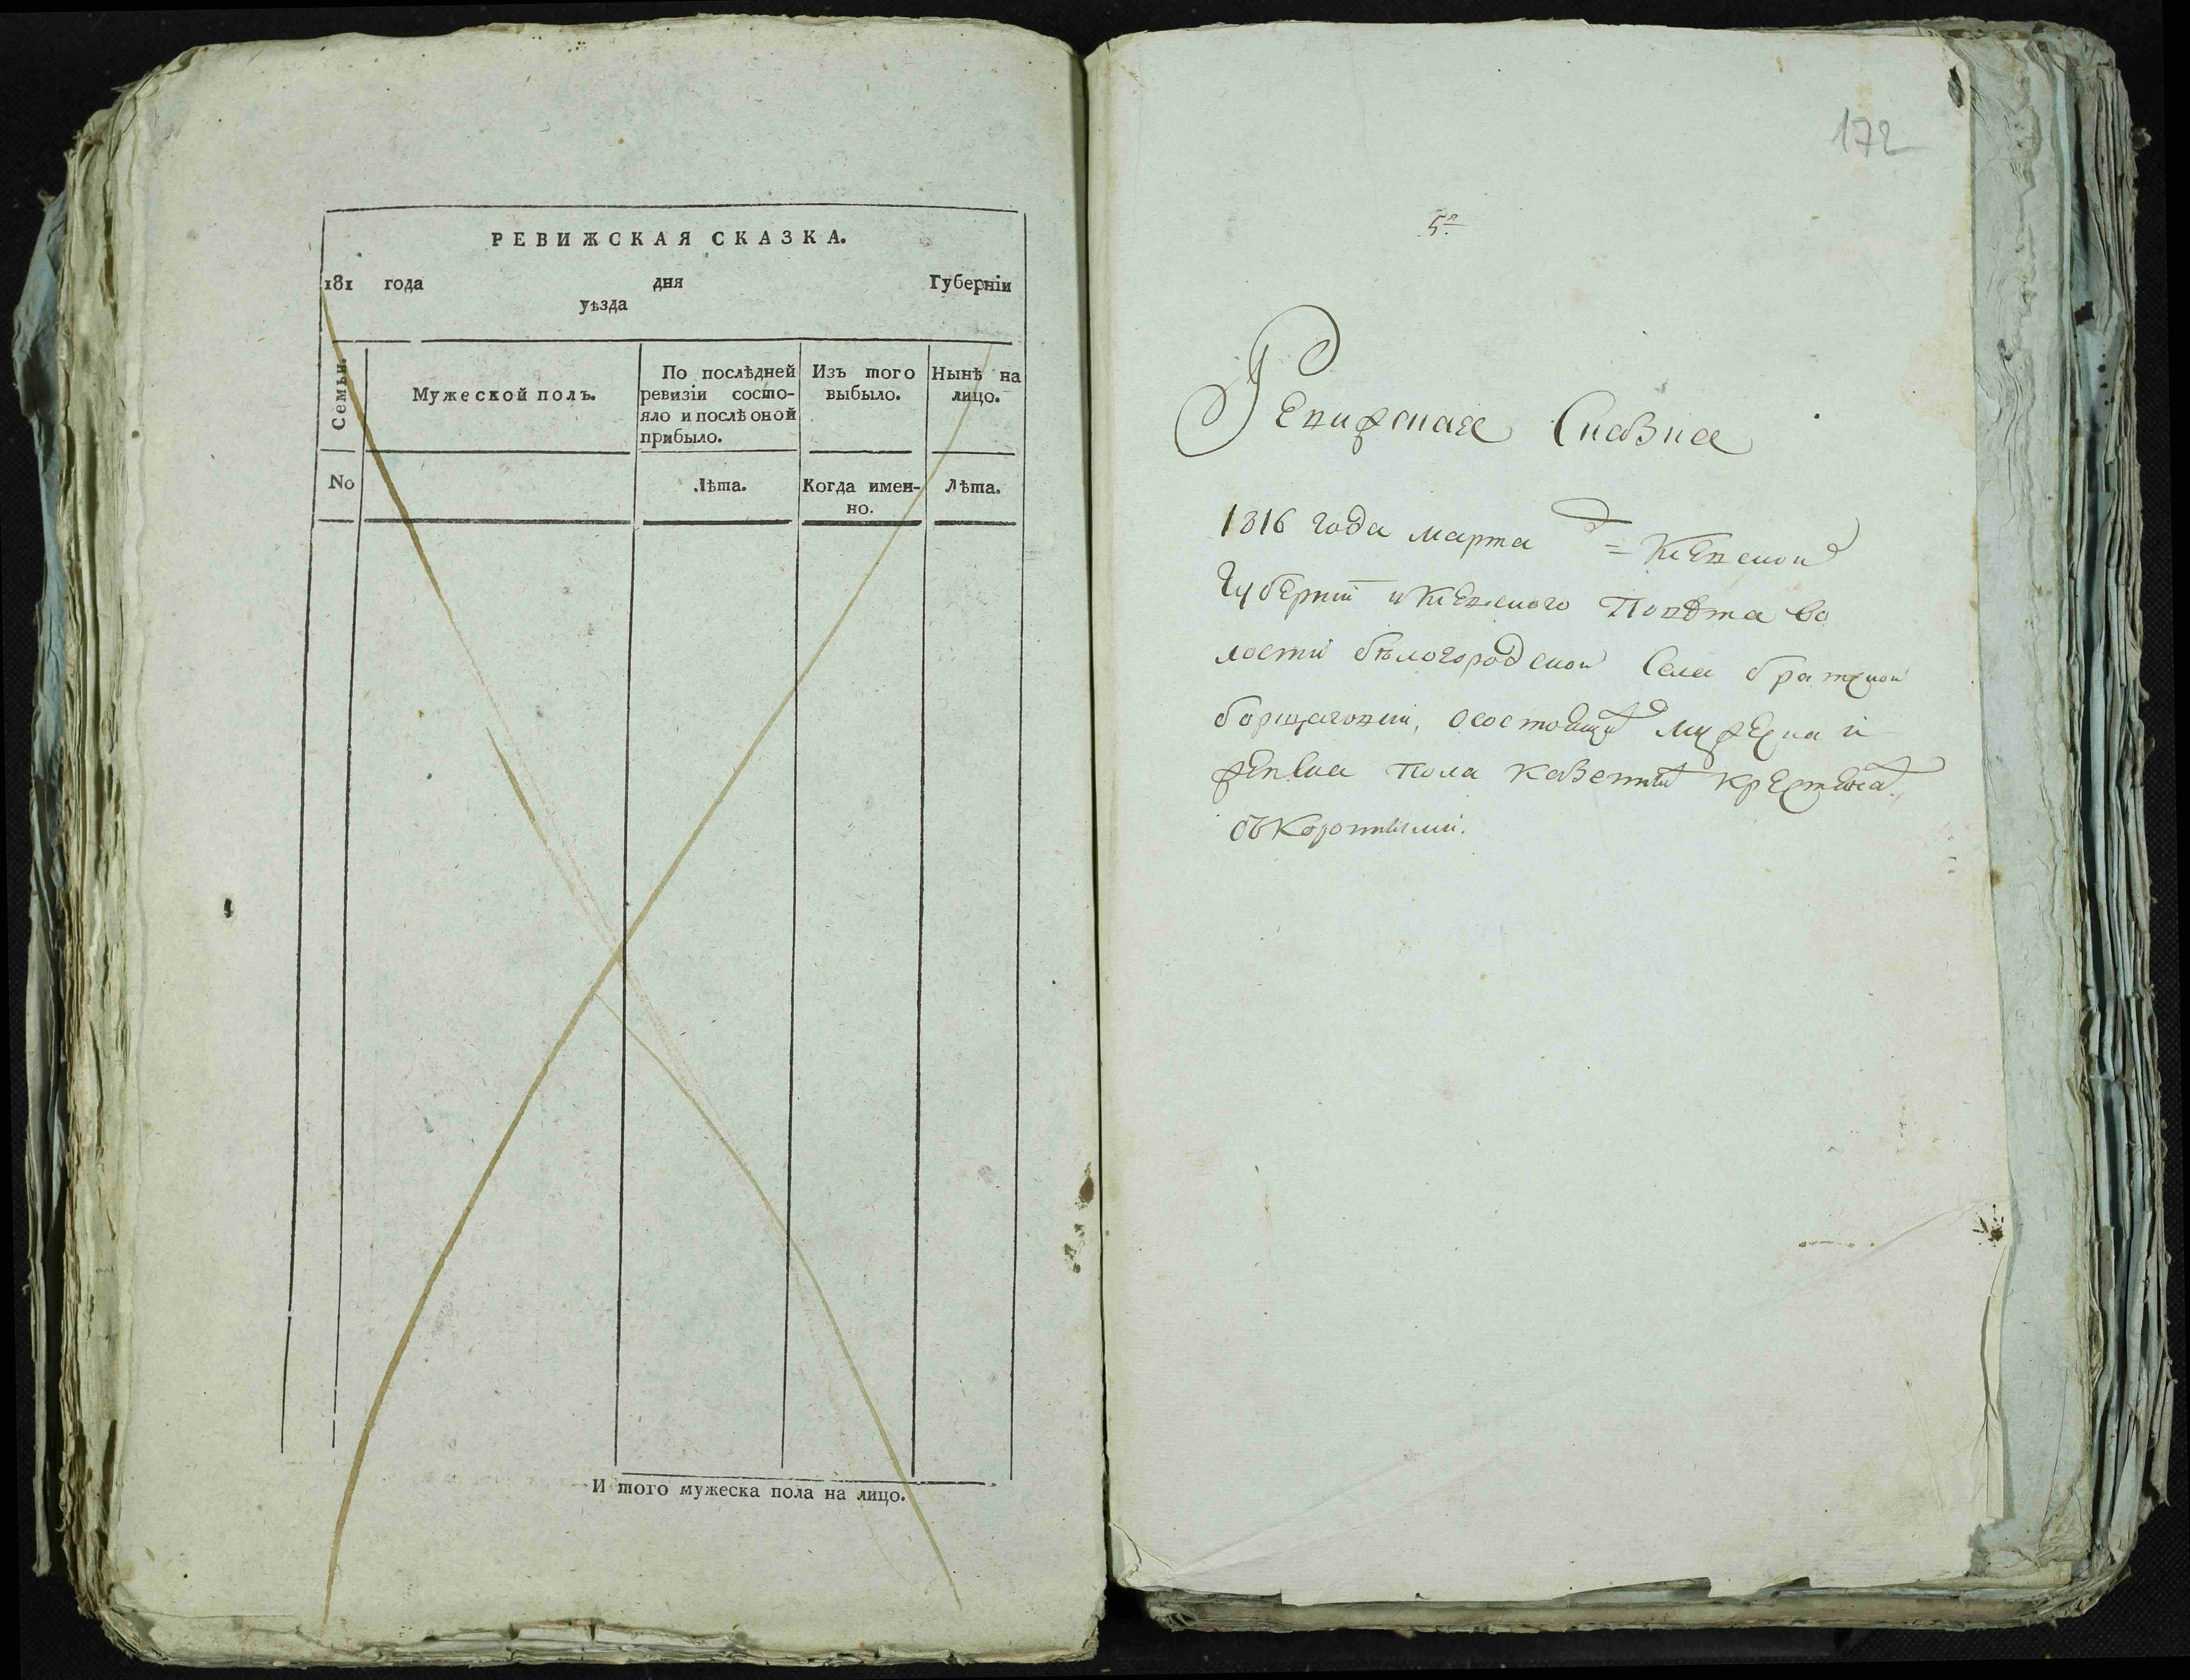 РЕВИЖСКАЯ СКАЗКА.
181 года дня Губерніи
уѣзда
Семьи.
Мужеской полъ.
По послѣдней
ревизіи состо-
яло и послѣ оной
прибыло.
Изъ того
выбыло.
Нынѣ на
лицо.
No
Лѣта.
Когда имен-
но.
Лѣта.
И того мужеска пола на лицо.
172
5я
Ревижская Сказка
1816 года марта Киевской
Губернии и Киевского Повѣта во
лости бѣлогородской Села братской
борщаговки, осостоящих мужеска и
женска пола казенных крестянах